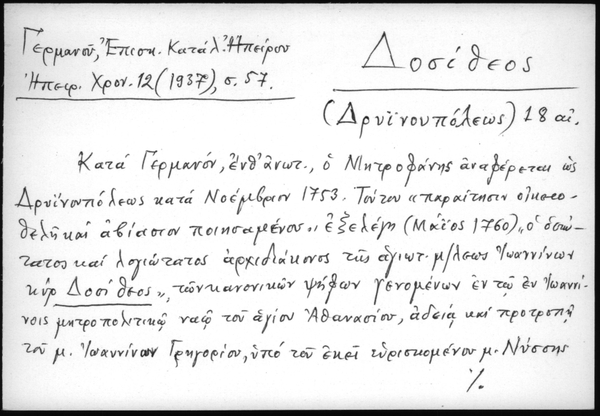 Γερμανοῦ, Ἐπισκ. Κατάλ. Ἠπείρου
Ἠπειρ. Χρον. 12 (1937), σ. 57.
Δοσίθεος
(Δρυϊνουπόλεως) 18 αἰ.
Κατά Γερμανόν, ἔνθ' ἀνωτ., ὁ Μητροφάνης ἀναφέρεται ὡς
Δρυϊνουπόλεως κατά Νοέμβριον 1753. Τούτου "παραίτησιν οἰκειο-
θελῆ καί ἀβίαστον ποιησαμένου" ἐξελέγη (Μάϊος 1760) "ὁ ὁσιώ-
τατος καί λογιώτατος ἀρχιδιάκονος τῆς ἁγιωτ. μ/λεως Ἰωαννίνων
κύρ Δοσίθεος", τῶν κανονικῶν ψήφων γενομένων ἐν τῷ ἐν Ἰωαννί-
νοις μητροπολιτικῷ ναῷ τοῦ ἁγίου Ἀθανασίου, ἀδείᾳ καί προτροπῇ
τοῦ μ. Ἰωαννίνων Γρηγορίου, ὑπό τοῦ ἐκεῖ εὑρισκομένου μ. Νύσσης
./.